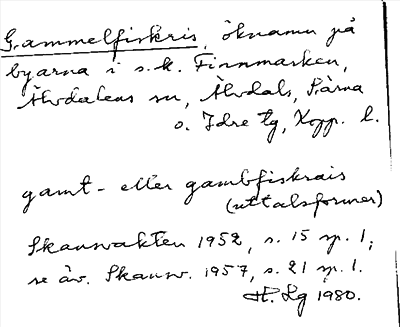 Gammelfiskris, öknamn på
byarna i s.k. Finnmarken,
Älvdalens sn, Älvdals, Särna
o. Idre tg, Kopp. l.
gamt- eller gambfiskrais
(uttalsformer)
Skansvakten 1952, s. 15 sp. 1,
se äv. Skansv. 1957, s. 21 sp. 1.
H. Lg 1980.